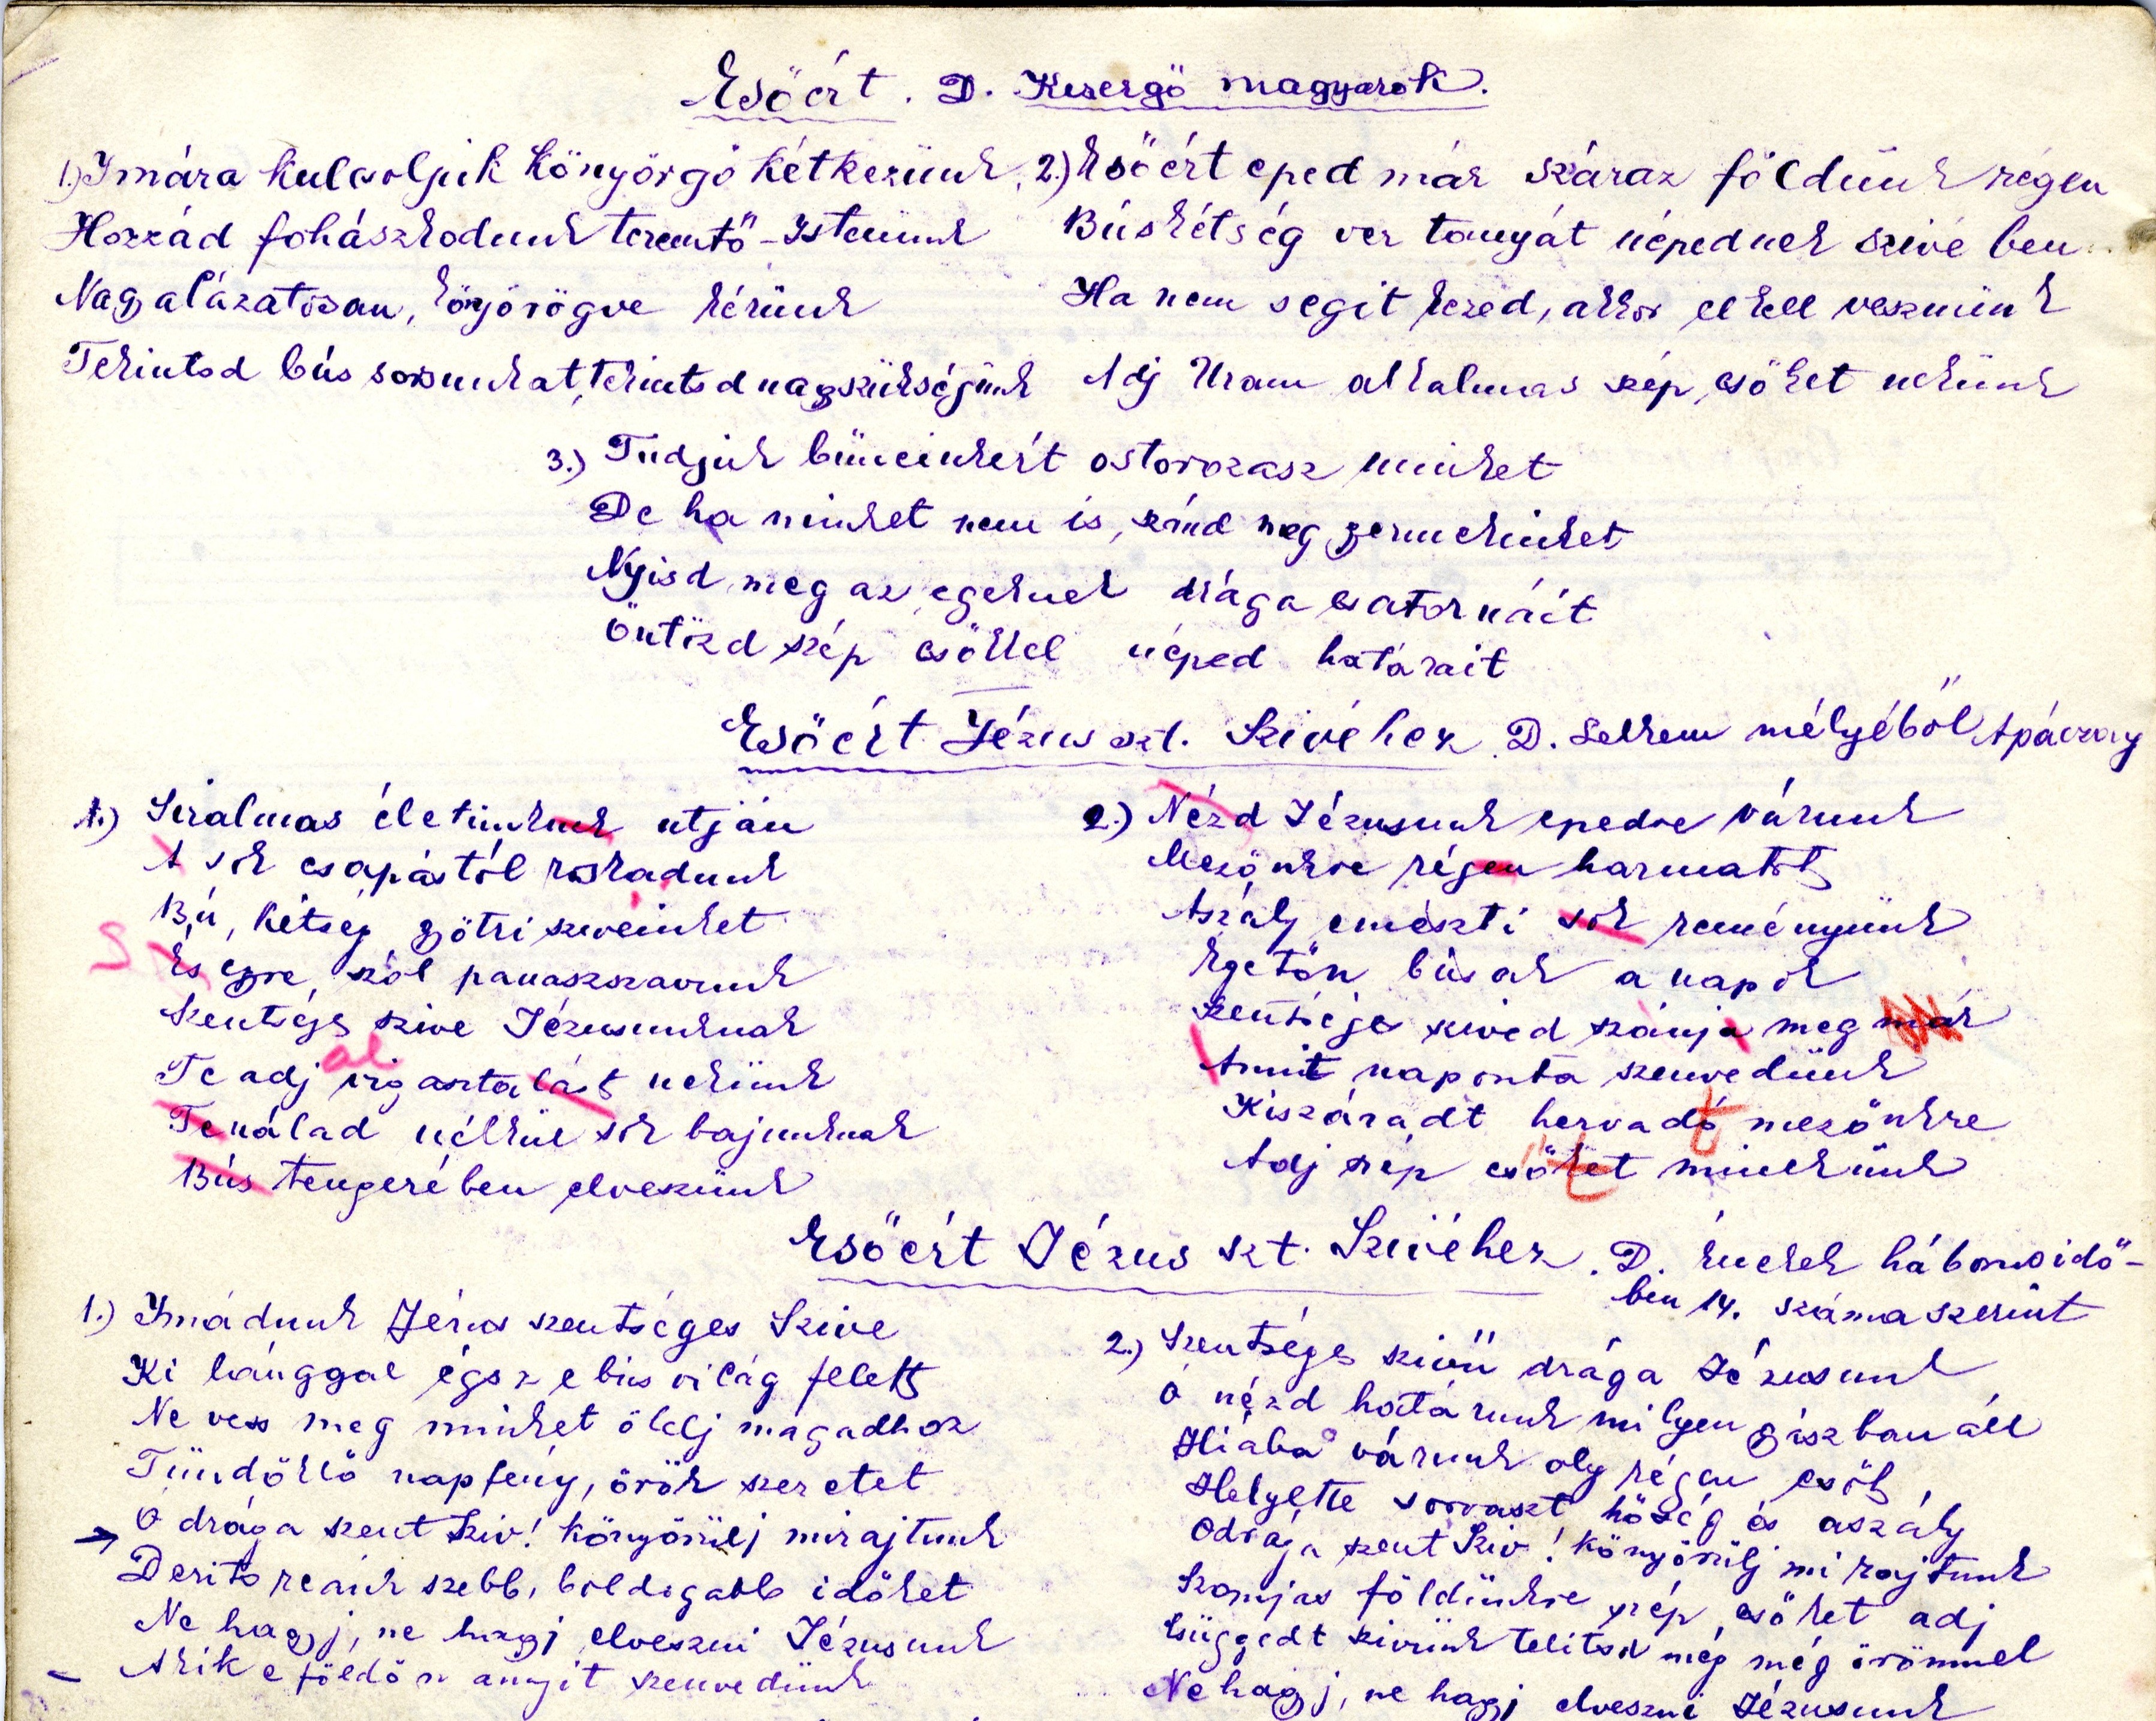 Esőért. D. Kesergő magyarok.
1.) Imára kulcsoljuk könyörgő kétkezünk,
Hozzád fohászkodunk teremtő-Istenünk
Nagyalázatosan, könyörögve kérünk
Tekintsd bús sorsunkat, tekintsd nagyszükségünk
2.) Esőért eped már száraz földünk régen
Búskétség ver tanyát népednek szivé ben
Ha nem segit kezed, akkor el kell vesznünk
Adj Uram alkalmas szép esőket nekünk
3.) Tudjuk bűneinkért ostorozasz minket
De ha minket nem is, szánd meg gyermekinket
Nyisd meg az egeknek drága csatornáit
Öntözd szép esőkkel néped határait
Esőért Jézus szt. Szivéhez D. Lelkem mélyéből Apáczay
1.) Siralmas életünknek utján
A sok csapástól roskadunk
Bú, kétség gyötri sziveinket
És egyre szól panaszszavunk
Szentséges szive Jézusunknak
Te adj irgasztalást nekünk
al
Tenálad nélkül sok bajunknak
Bús tengerében elveszünk
S
2.) Nézd Jézusunk epedve várunk
Mezőnkre régen harmatot
Aszály emészti sok reményünk
Égetőn búsak a napok
Szentséges szived szánja meg már
Amit naponta szenvedünk
Kiszáradt hervadó mezőnkre
t
Adj szép esőket minekünk
t
Esőért Jézus szt. Szivéhez. D. Énekek háborusidő-
ben 14. száma szerint
1.) Imádunk Jézus szentséges Szive
Ki lánggal égsz e bús világ felett
Ne vess meg minket ölelj magadhoz
Tündöklő napfény, örök szeretet
Ó drága szent Sziv! könyörülj mirajtunk
Derits reánk szebb, boldogabb időket
Ne hagyj, ne hagyj elveszni Jézusunk
Akik e földön annyit szenvedünk
2.) Szentséges szivű drága Jézusunk
Ó nézd határunk milyen gyászban áll
Hiába várunk oly régen esőt,
Helyette sorvaszt hőség és aszály
Ó drága szent Sziv! könyörülj mi rajtunk
Szomjas földünkre szép esőket adj
Csüggedt szivünk telitsd még még örömmel
Ne hagyj, ne hagyj elveszni Jézusunk